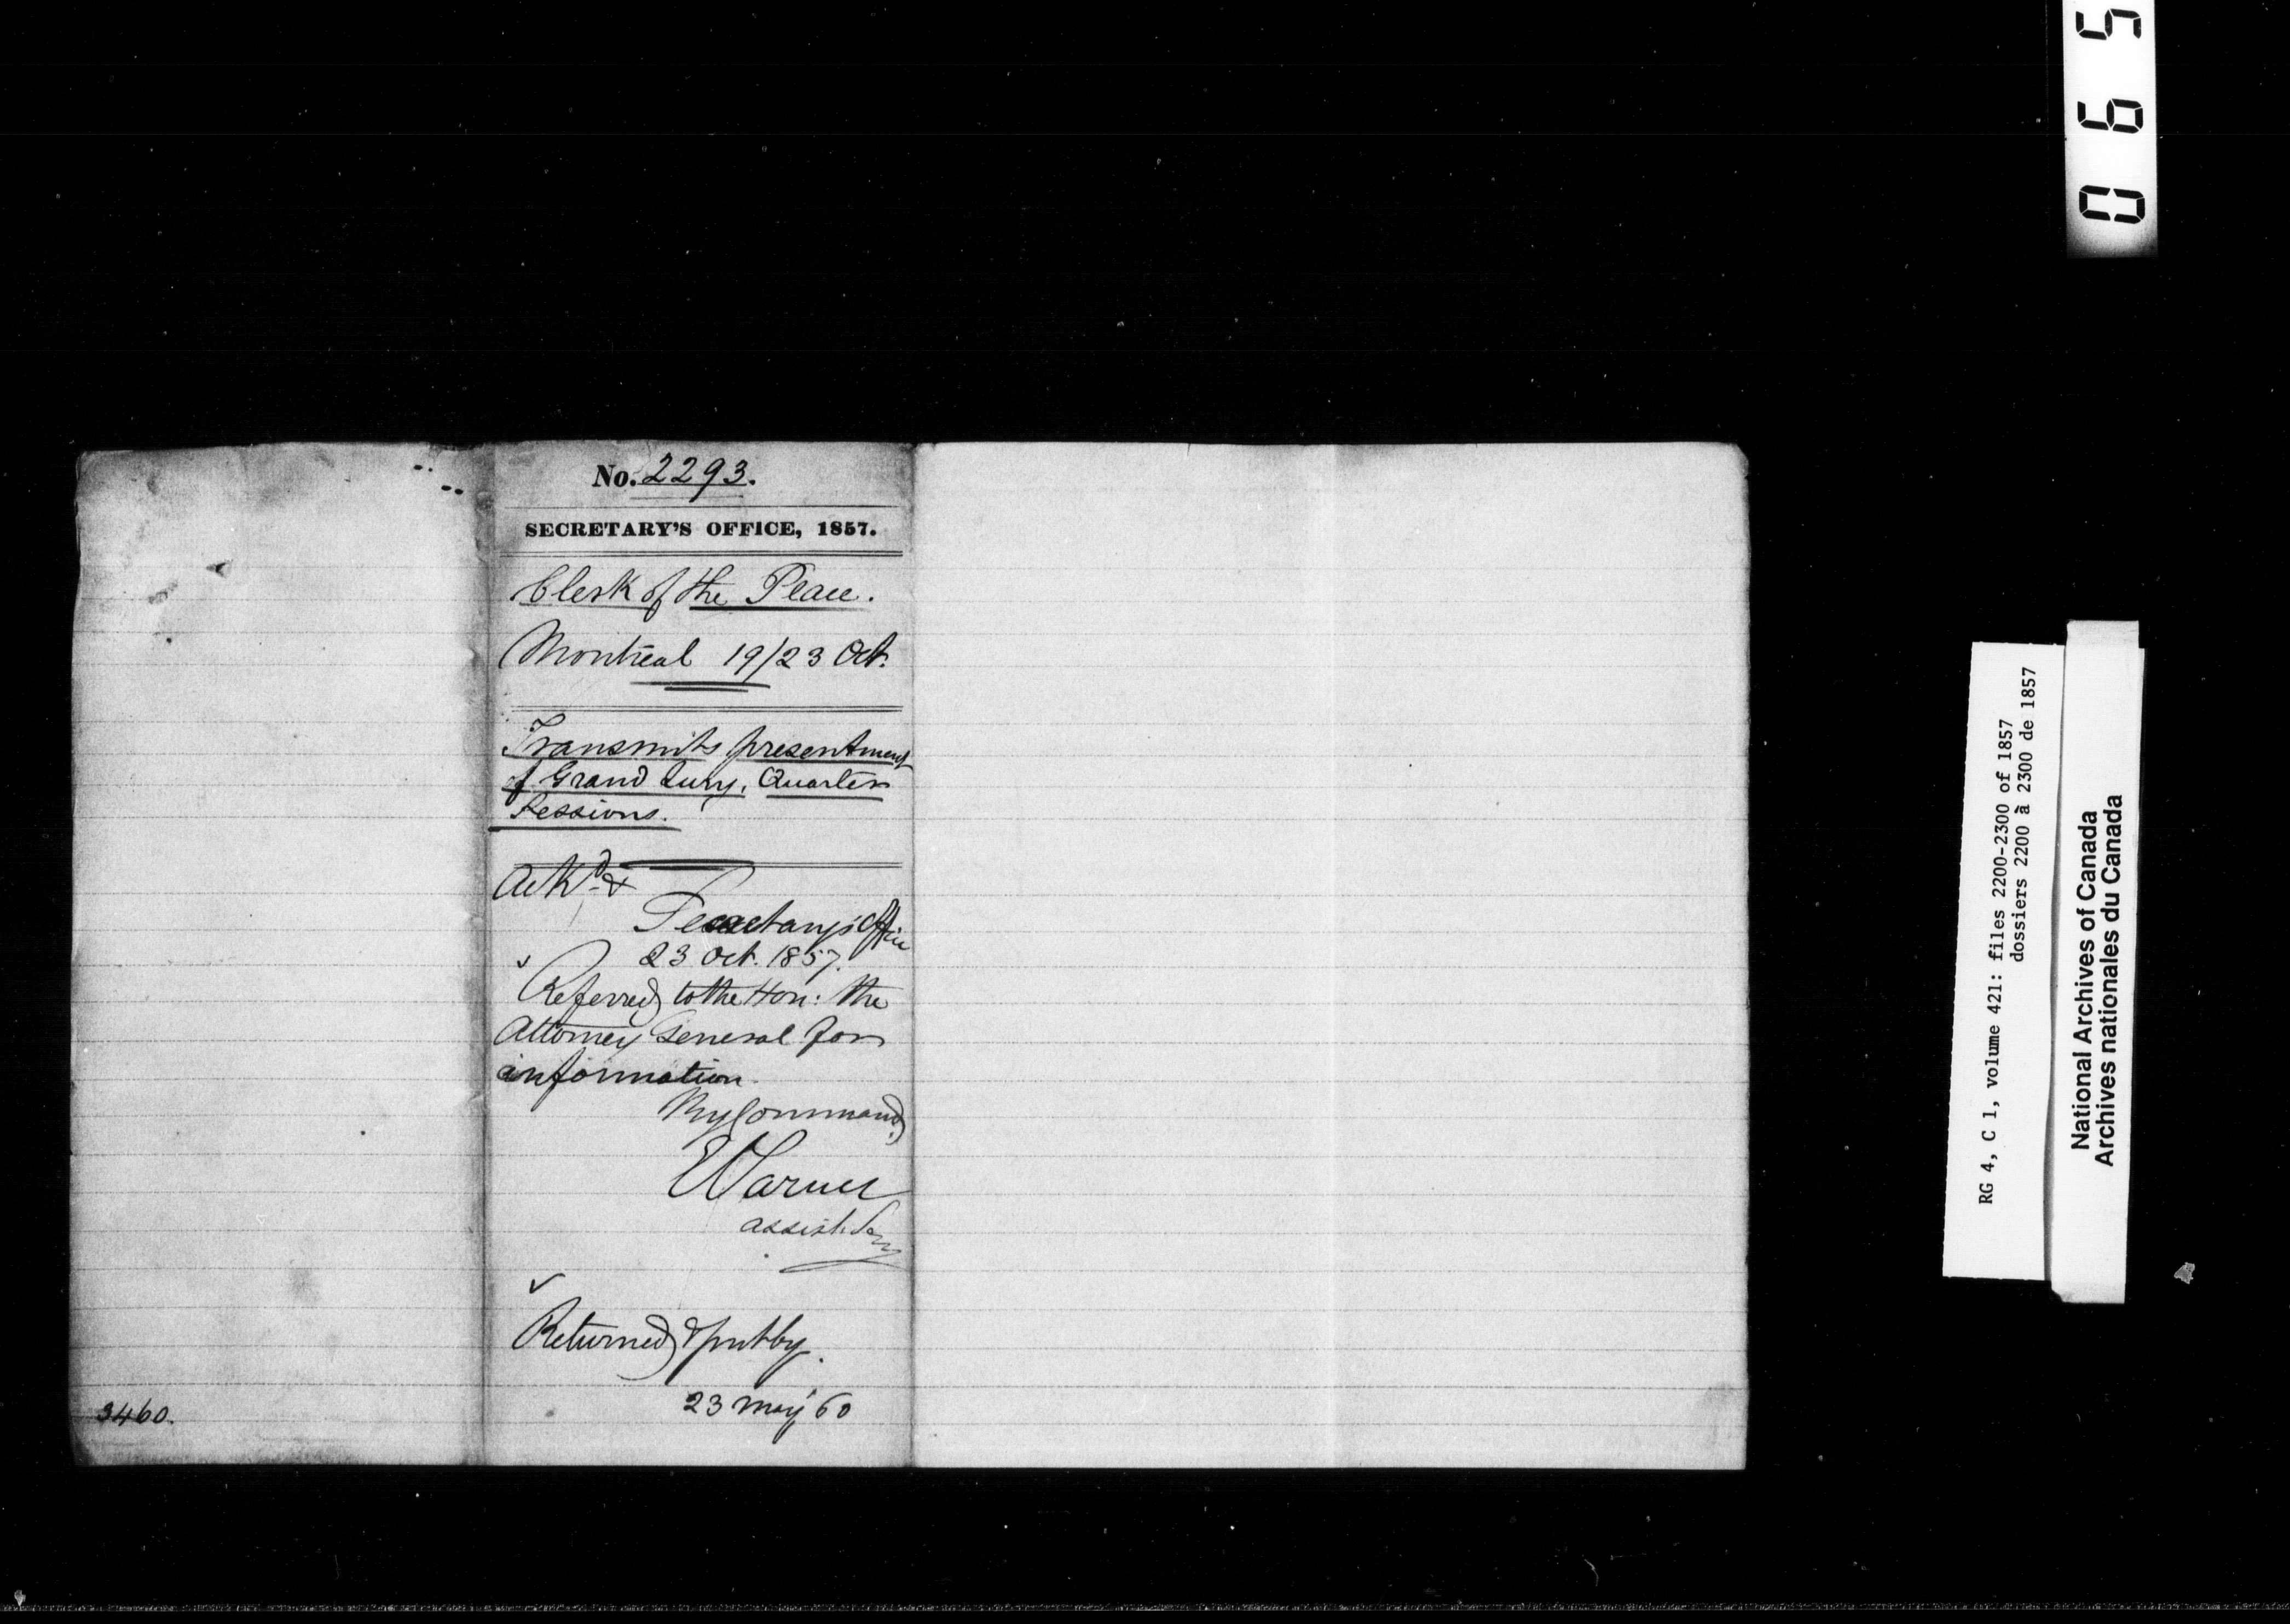 No. 2293.
SECRETARY'S OFFICE, 1857.
Clerk of the Peace.
Montreal 19/23 Oct.
Transmits presentment
of Grand Jury, Quarter
Sessions.
Ackd. &
Secretary's Office
23 Oct. 1857.
Referred to the Hon: the
Attorney General for
information.
By Command,
E Parent
Assist. Secy
Returned & put by.
23 May 60
3460.
0695
RG 4, C 1, volume 421: files 2200-2300 of 1857
dossiers 2200 à 2300 de 1857
National Archives of Canada
Archives nationales du Canada